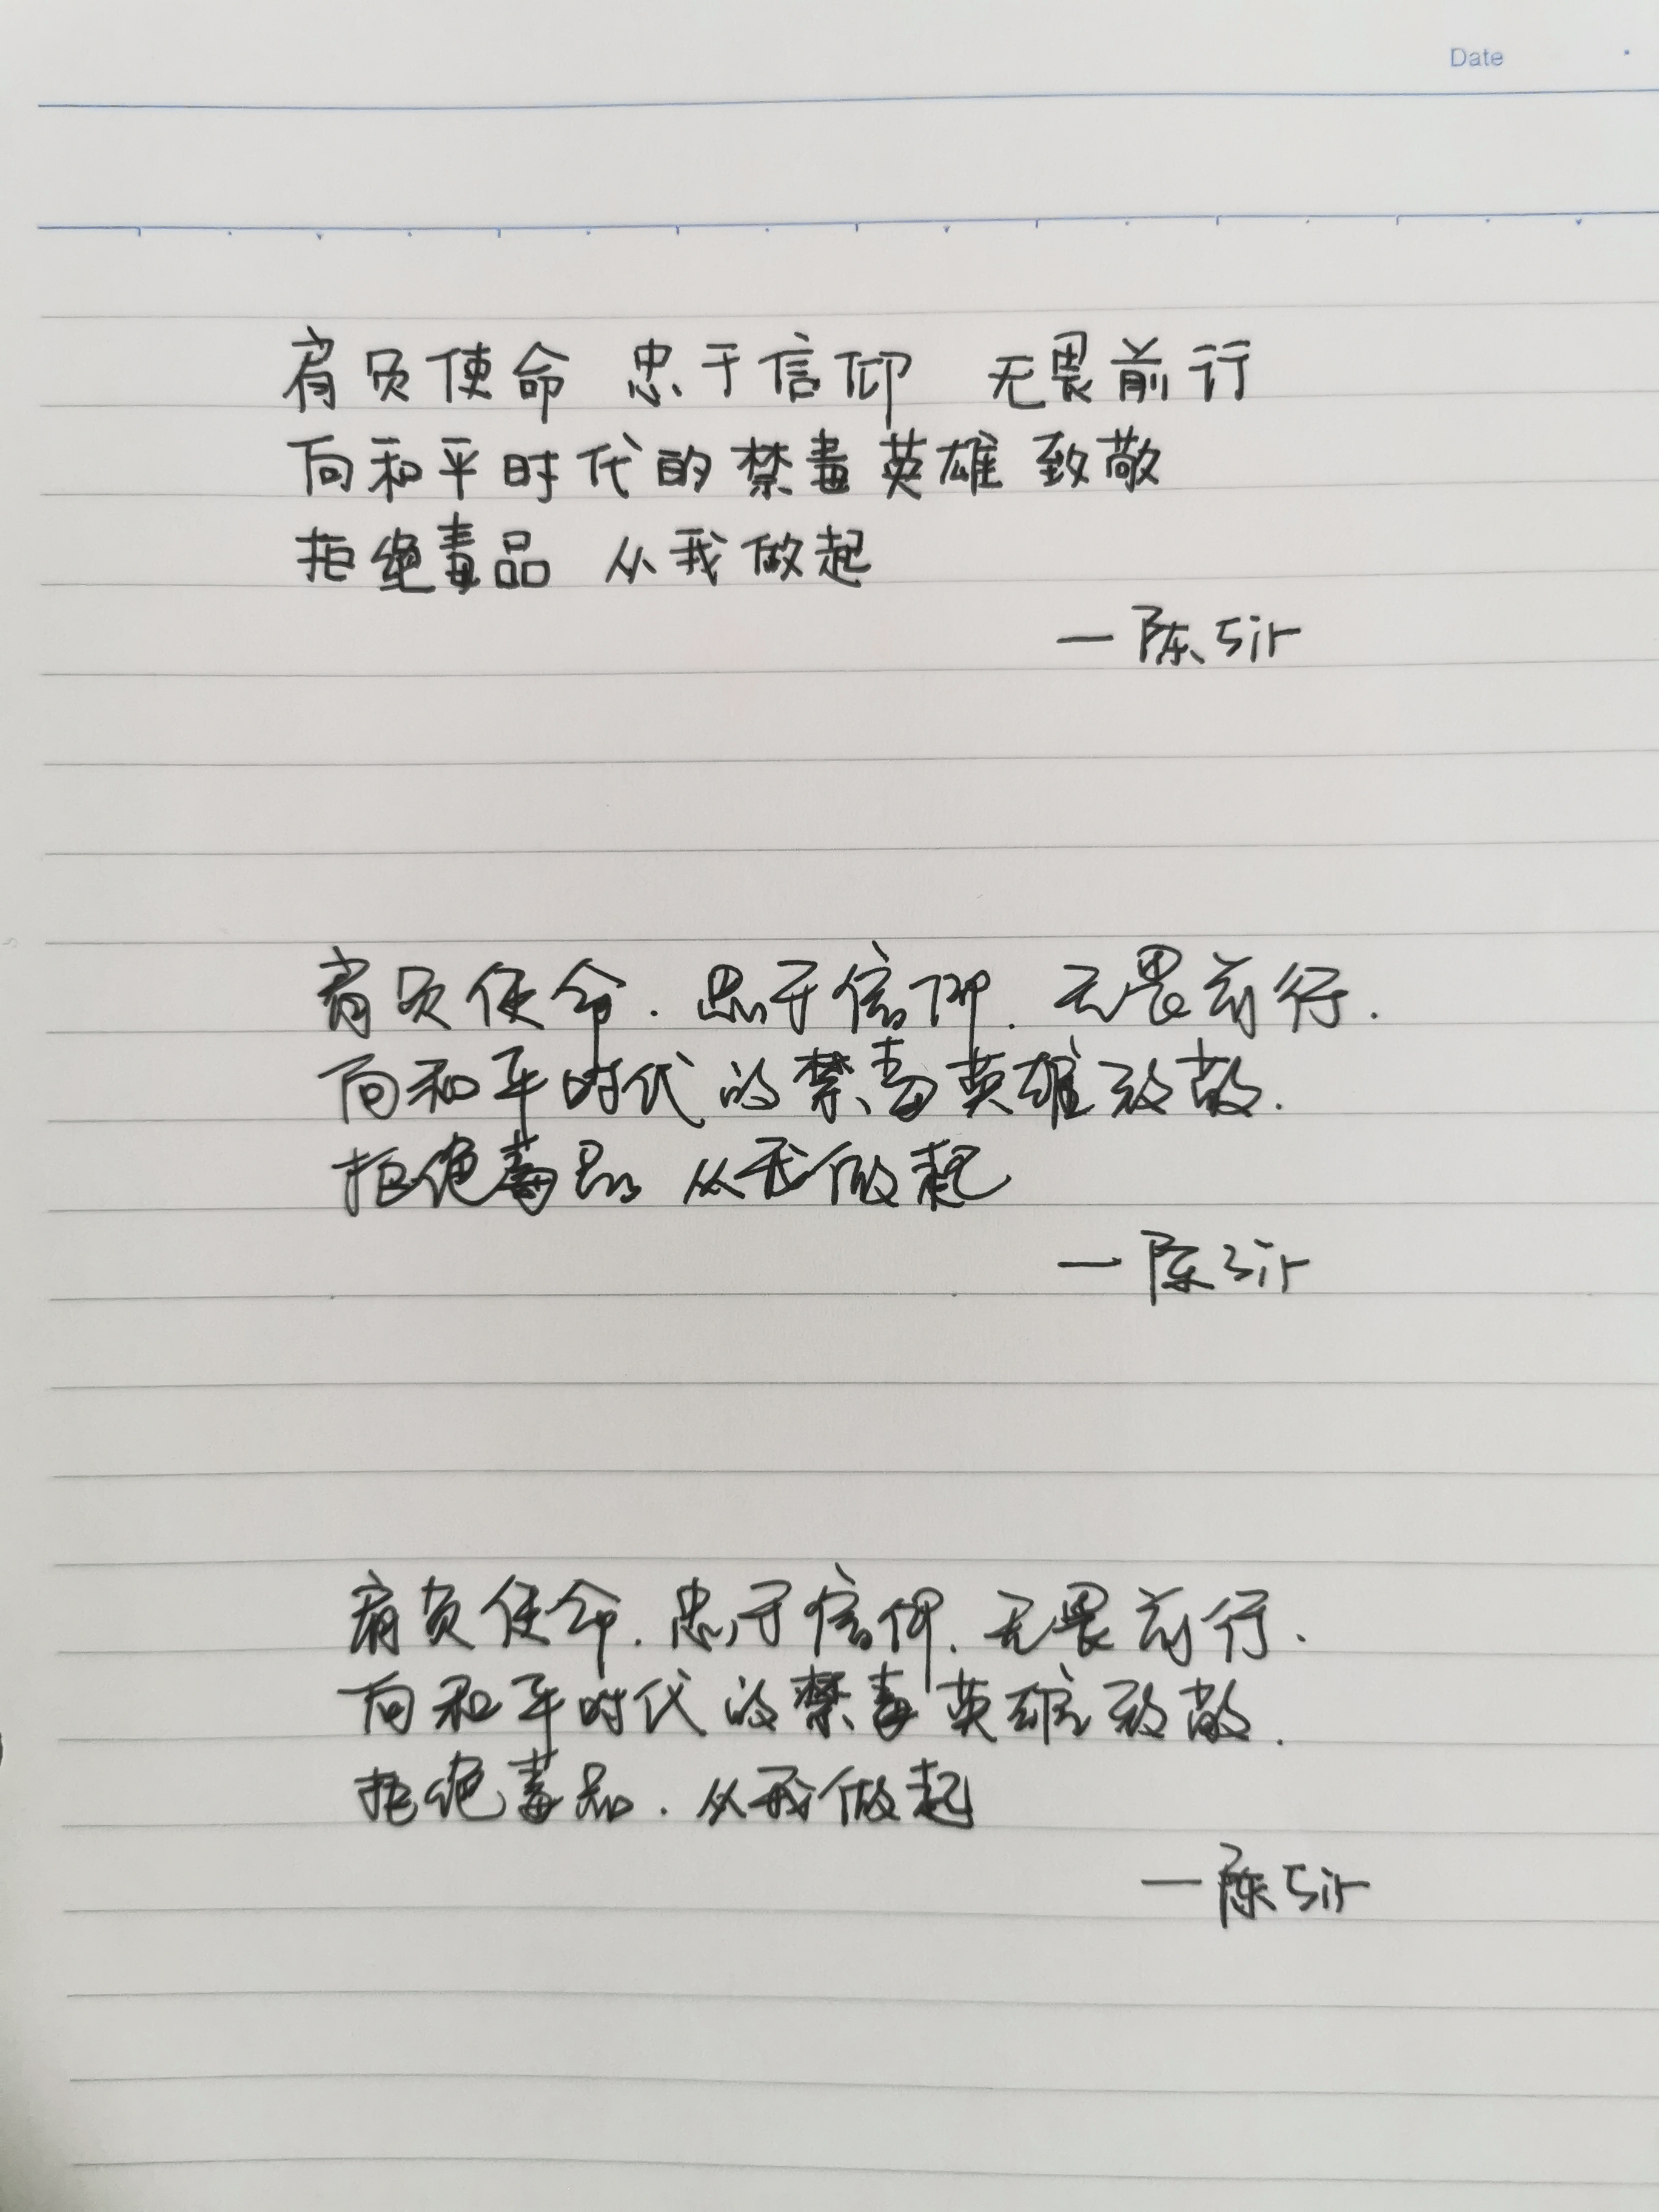 Date
肩负使命 忠于信仰 无畏前行
向和平时代的禁毒英雄致敬
拒绝毒品 从我做起
—陈Sir
肩负使命.忠于信仰.无畏前行.
向和平时代的禁毒英雄致敬.
拒绝毒品 从我做起
—陈Sir
肩负使命.忠于信仰.无畏前行.
向和平时代的禁毒英雄致敬.
拒绝毒品.从我做起
—陈Sir